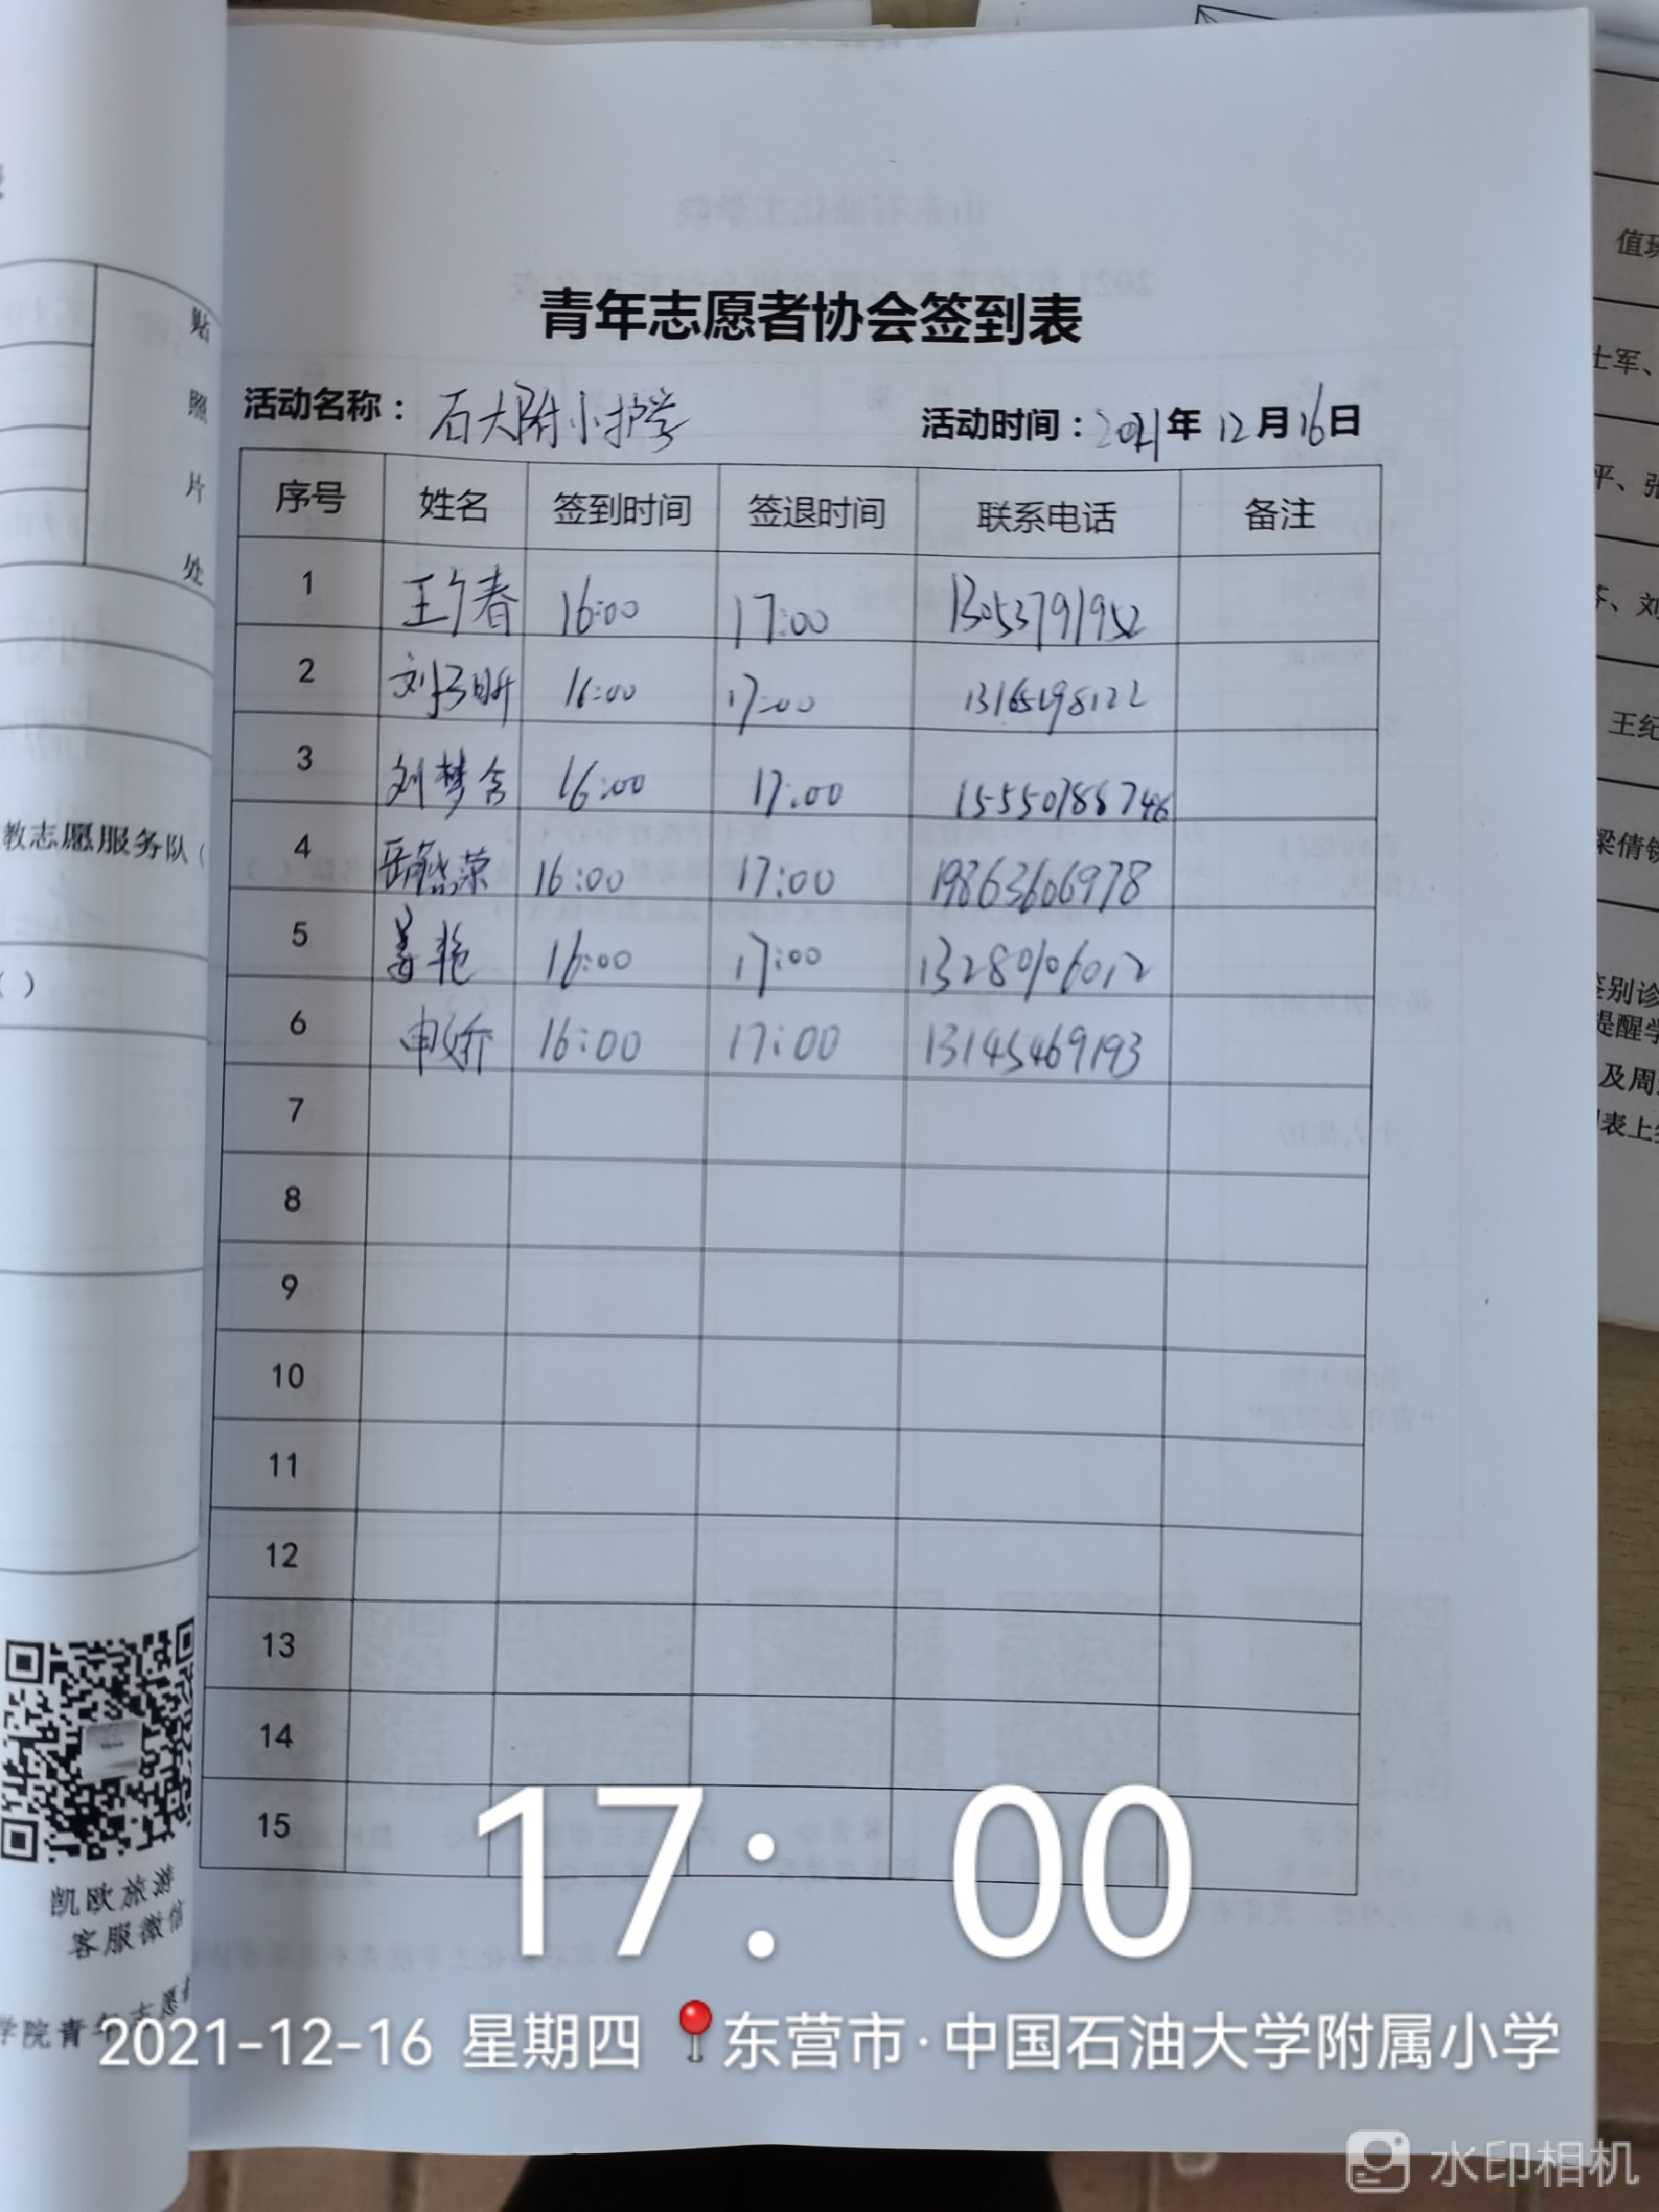 青年志愿者协会签到表
活动名称：石大附小护学 活动时间：2021年12月16日
序号 姓名 签到时间 签退时间 联系电话 备注
1 王 春 16:00 17:00 13053791952
2 刘子昕 16:00 17:00
3 刘梦含 16:00 17:00 15550788746
4 燕荣 16:00 17:00 19863606978
5 姜艳 16:00 17:00 13280106012
6 申娇 16:00 17:00 13145469193
7
8
9
10
11
12
13
14
15
贴
照
片
处
教志愿服务队（
（ ）
凯欧旅游
客服微信
学院青年志愿者
士军、
王纪
提醒学
及周
表上
17:00
2021-12-16 星期四 东营市·中国石油大学附属小学
水印相机